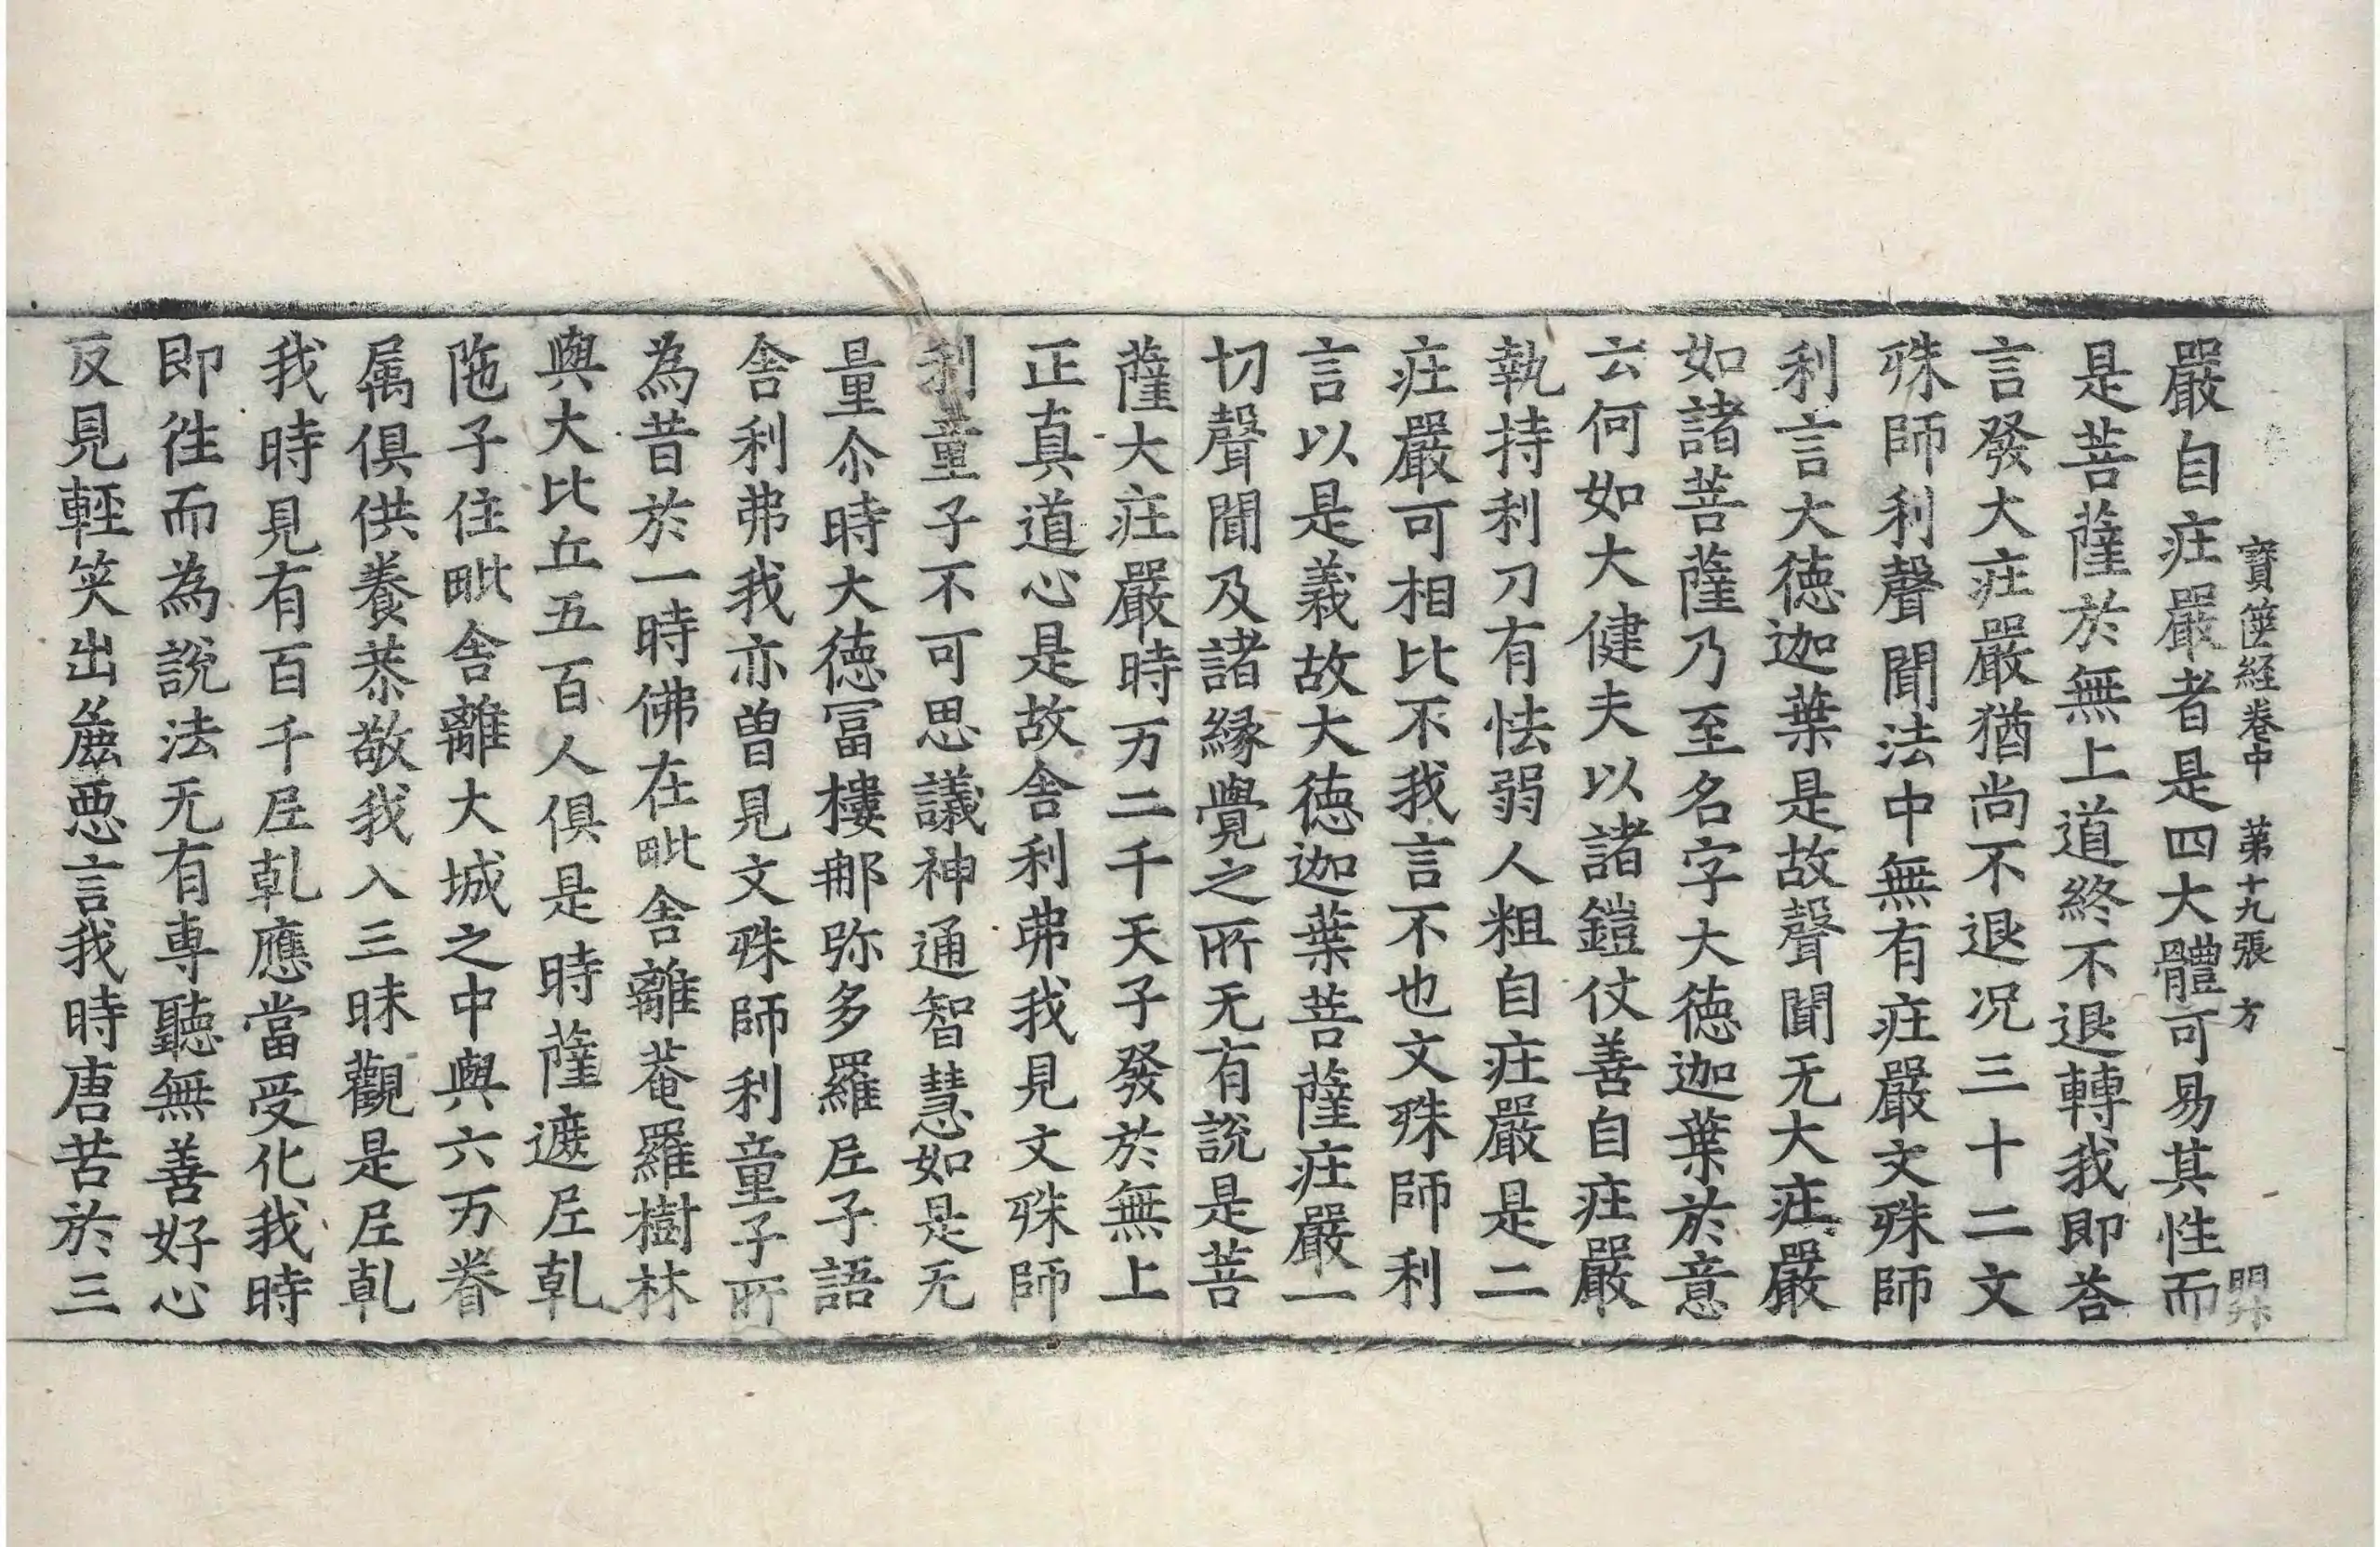 寶篋経卷中 第十九張 方
嚴自庄嚴者是四大體可易其性而
是菩薩於無上道終不退轉我即荅
言發大庄嚴猶尚不退况三十二文
殊師利聲聞法中無有庄嚴文殊師
利言大徳迦葉是故聲聞无大庄嚴
如諸菩薩乃至名字大徳迦葉於意
云何如大健夫以諸鎧仗善自庄嚴
執持利刀有怯弱人粗自庄嚴是二
庄嚴可相比不我言不也文殊師利
言以是義故大徳迦葉菩薩庄嚴一
切聲聞及諸縁覺之所无有說是菩
薩大庄嚴時万二千天子發於無上
正真道心是故舎利弗我見文殊師
利童子不可思議神通智慧如是无
量尒時大徳冨樓那弥多羅尼子語
舎利弗我亦曽見文殊師利童子所
為昔於一時佛在毗舎離菴羅樹林
與大比丘五百人俱是時薩遮尼乹
陁子住毗舎離大城之中與六万眷
属俱供養恭敬我入三昧觀是尼乹
我時見有百千尼乹應當受化我時
即徃而為說法无有専聽無善好心
反見輕笑出麁惡言我時唐苦於三